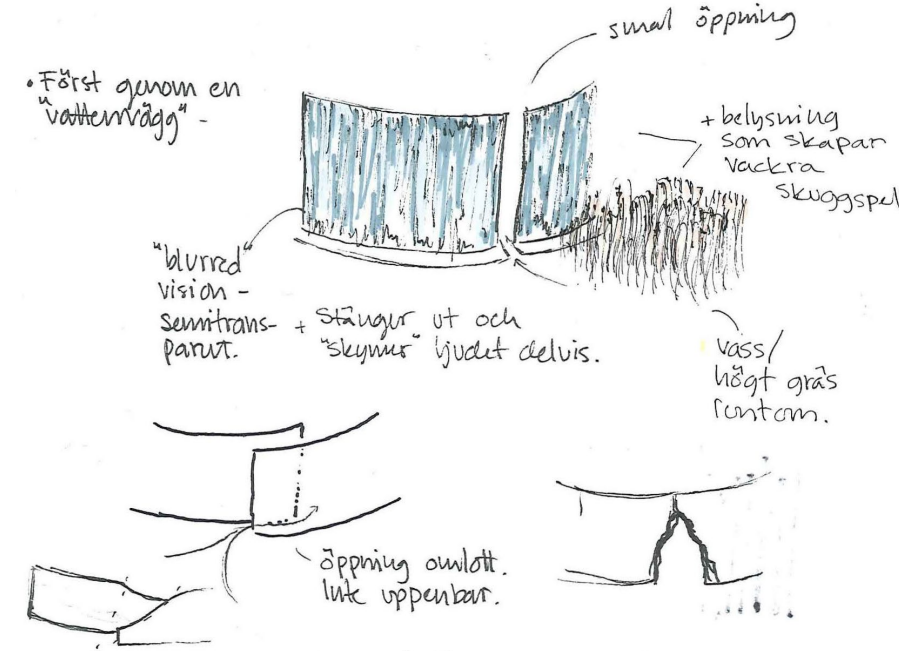 smal öppning
• Först genom en
"vattenvägg" -
+ belysning
som skapar
vackra
skuggspel
"blurred"
vision -
semitrans-
parut.
+ Stänger ut och
"skymer" ljudet delvis.
vass/
högt gräs
runtom.
öppning omlott.
Inte uppenbar.